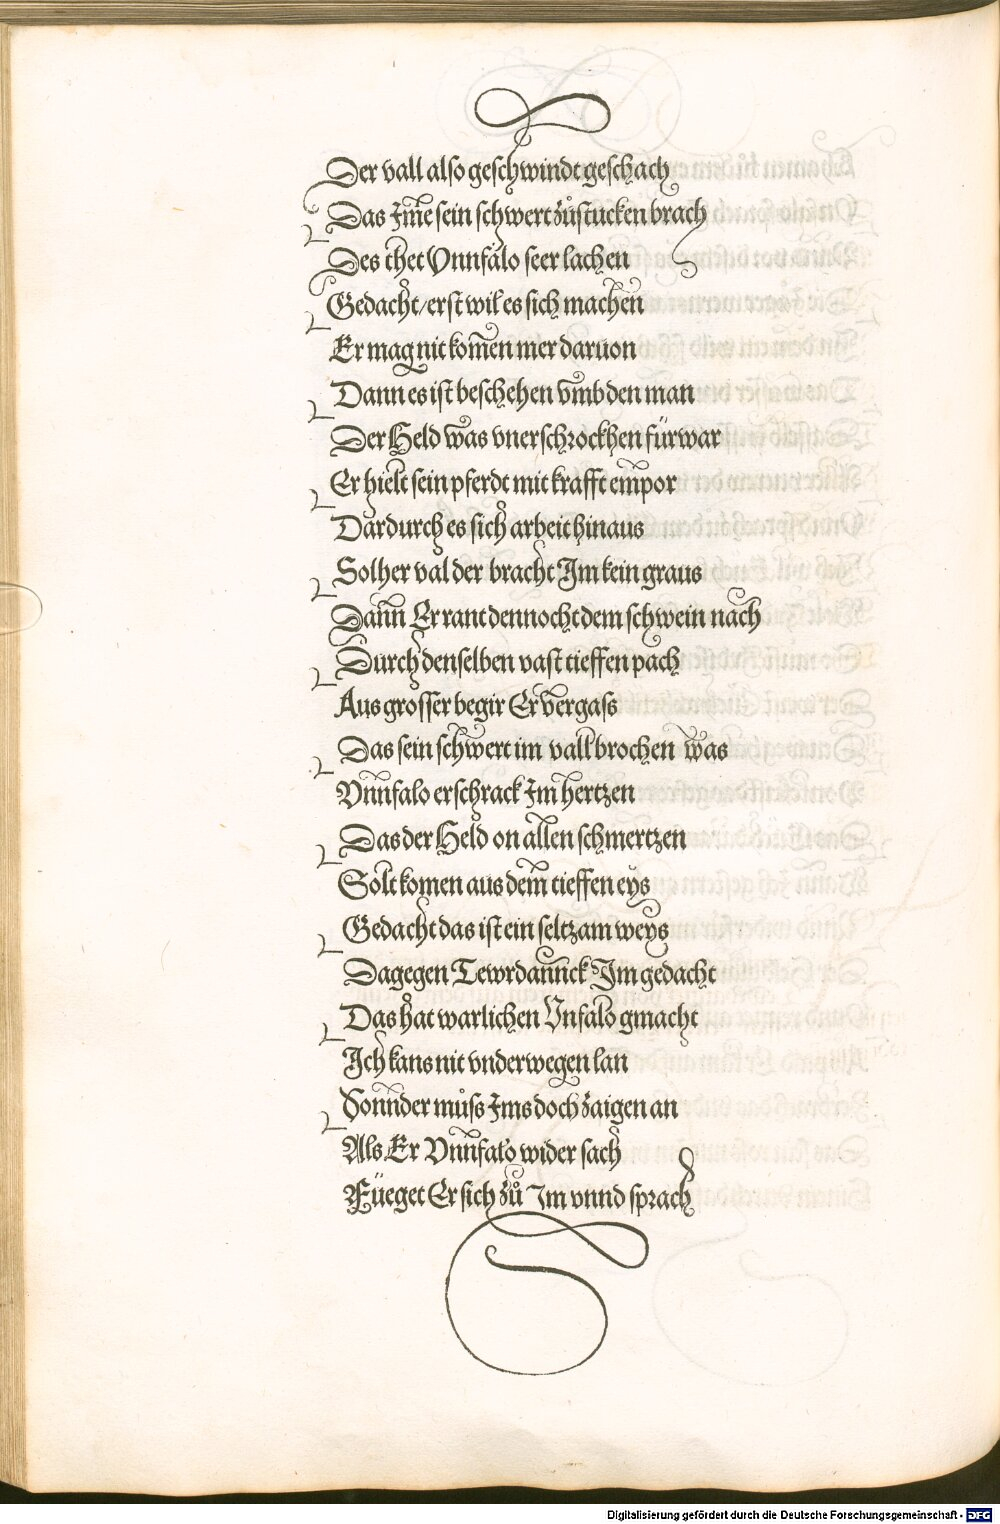 Der vall also geschwindt geschach
Das Im̄e sein schwert zůstucken brach
Des thet Vnnfalo seer lachen
Gedacht/erst wil es sich machen
Er mag nit kom̄en mer daruon
Dann es ist beschehen vmb den man
Der Held was vnerschrockhen fürwar
Er hielt sein pferdt mit krafft empor
Dardurch es sich arbeit hinaus
Solher val der bracht Im kein graus
Dann Er rant dennocht dem schwein nach
Durch denselben vast tieffen pach
Aus grosser begir Er vergass
Das sein schwert im vall brochen was
Vnnfalo erschrack Im hertzen
Das der Held on allen schmertzen
Solt komen aus dem tieffen eys
Gedacht das ist ein seltzam weys
Dagegen Tewrdannck Im gedacht
Das hat warlichen Vnfalo gmacht
Ich kans nit vnderwegen lan
Sonnder můss Ims doch zaigen an
Als Er Vnnfalo wider sach
Füeget Er sich zů Im vnnd sprach
Digitalisierung gefördert durch die Deutsche Forschungsgemeinschaft - DFG